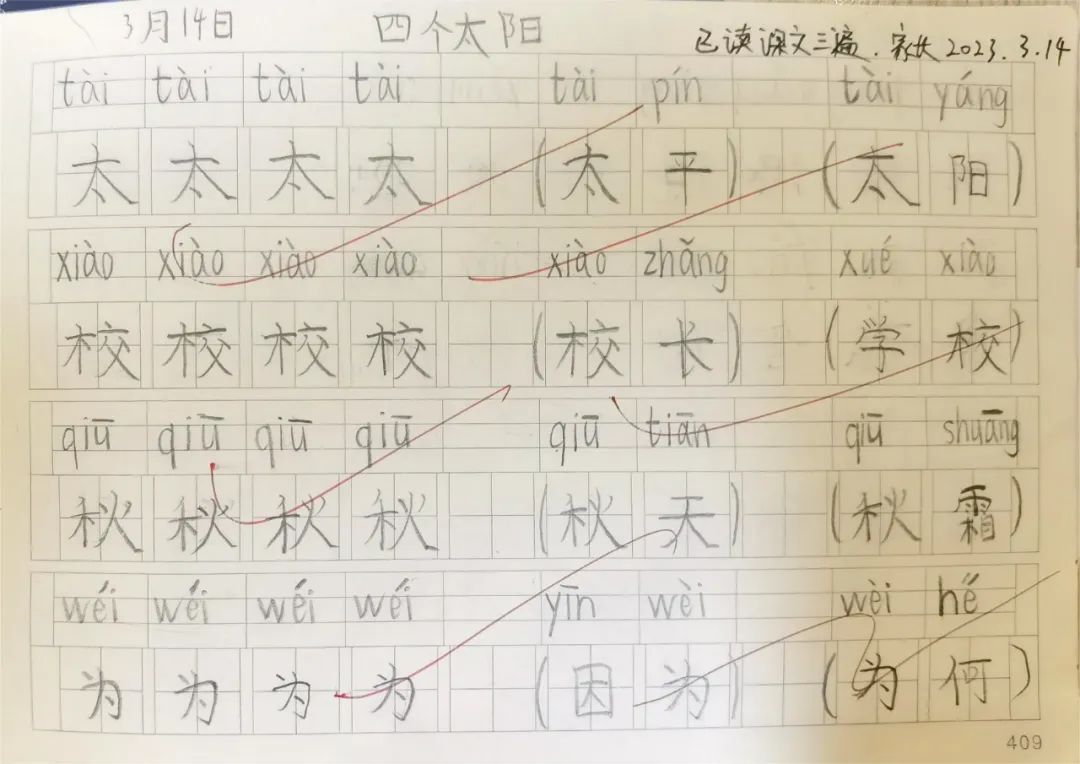 3月14日 四个太阳 已读课文三遍.家长2023.3.14
tài tài tài tài tài pín tài yáng
太 太 太 太 (太 平) (太 阳)
xiào xiào xiào xiào xiào zhǎng xué xiào
校 校 校 校 (校 长) (学 校)
qiū qiū qiū qiū qiū tiān qiū shuāng
秋 秋 秋 秋 (秋 天) (秋 霜)
wéi wéi wéi wéi yīn wèi wèi hé
为 为 为 为 (因 为) (为 何)
409